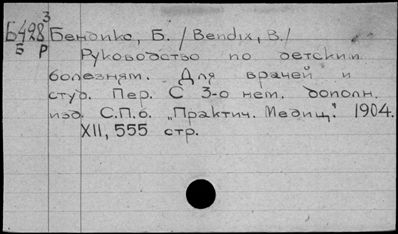 Б498 3 Бендикс, Б. /Bendix, B./
Б Р Руководство по детским
болезням. Для врачей и
студ. Пер. С 3-о нем. дополн.
изд. С.П.б. „Практич. Медиц." 1904.
XII, 555 стр.